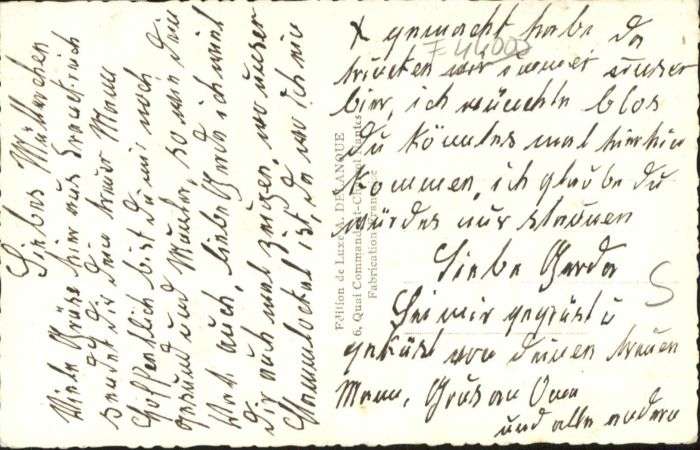 Liebes Mütterchen
Viele Grüße hier aus Frankreich
sendet dir dein treuer Mann
Hoffentlich bist du mir noch
gesund und Munter, so wie dein
auch, liebe Gerda ich will
Dir auch mal zeigen, wo unser
Stammlockal ist, da wo ich
X gemacht habe da
F 44002
trinken wir immer unser
bier, ich möchte blos
du könntes mal hierhin
kommen, ich glaube du
würdes nur staunen
Liebe Gerda
Sei mir gegrüst u
geküst von deinen treuen
Mann, Grus an Oma
und alle andern
Edition de Luxe A. DELANOUE
6, Quai Commandant Nantes
Fabrication